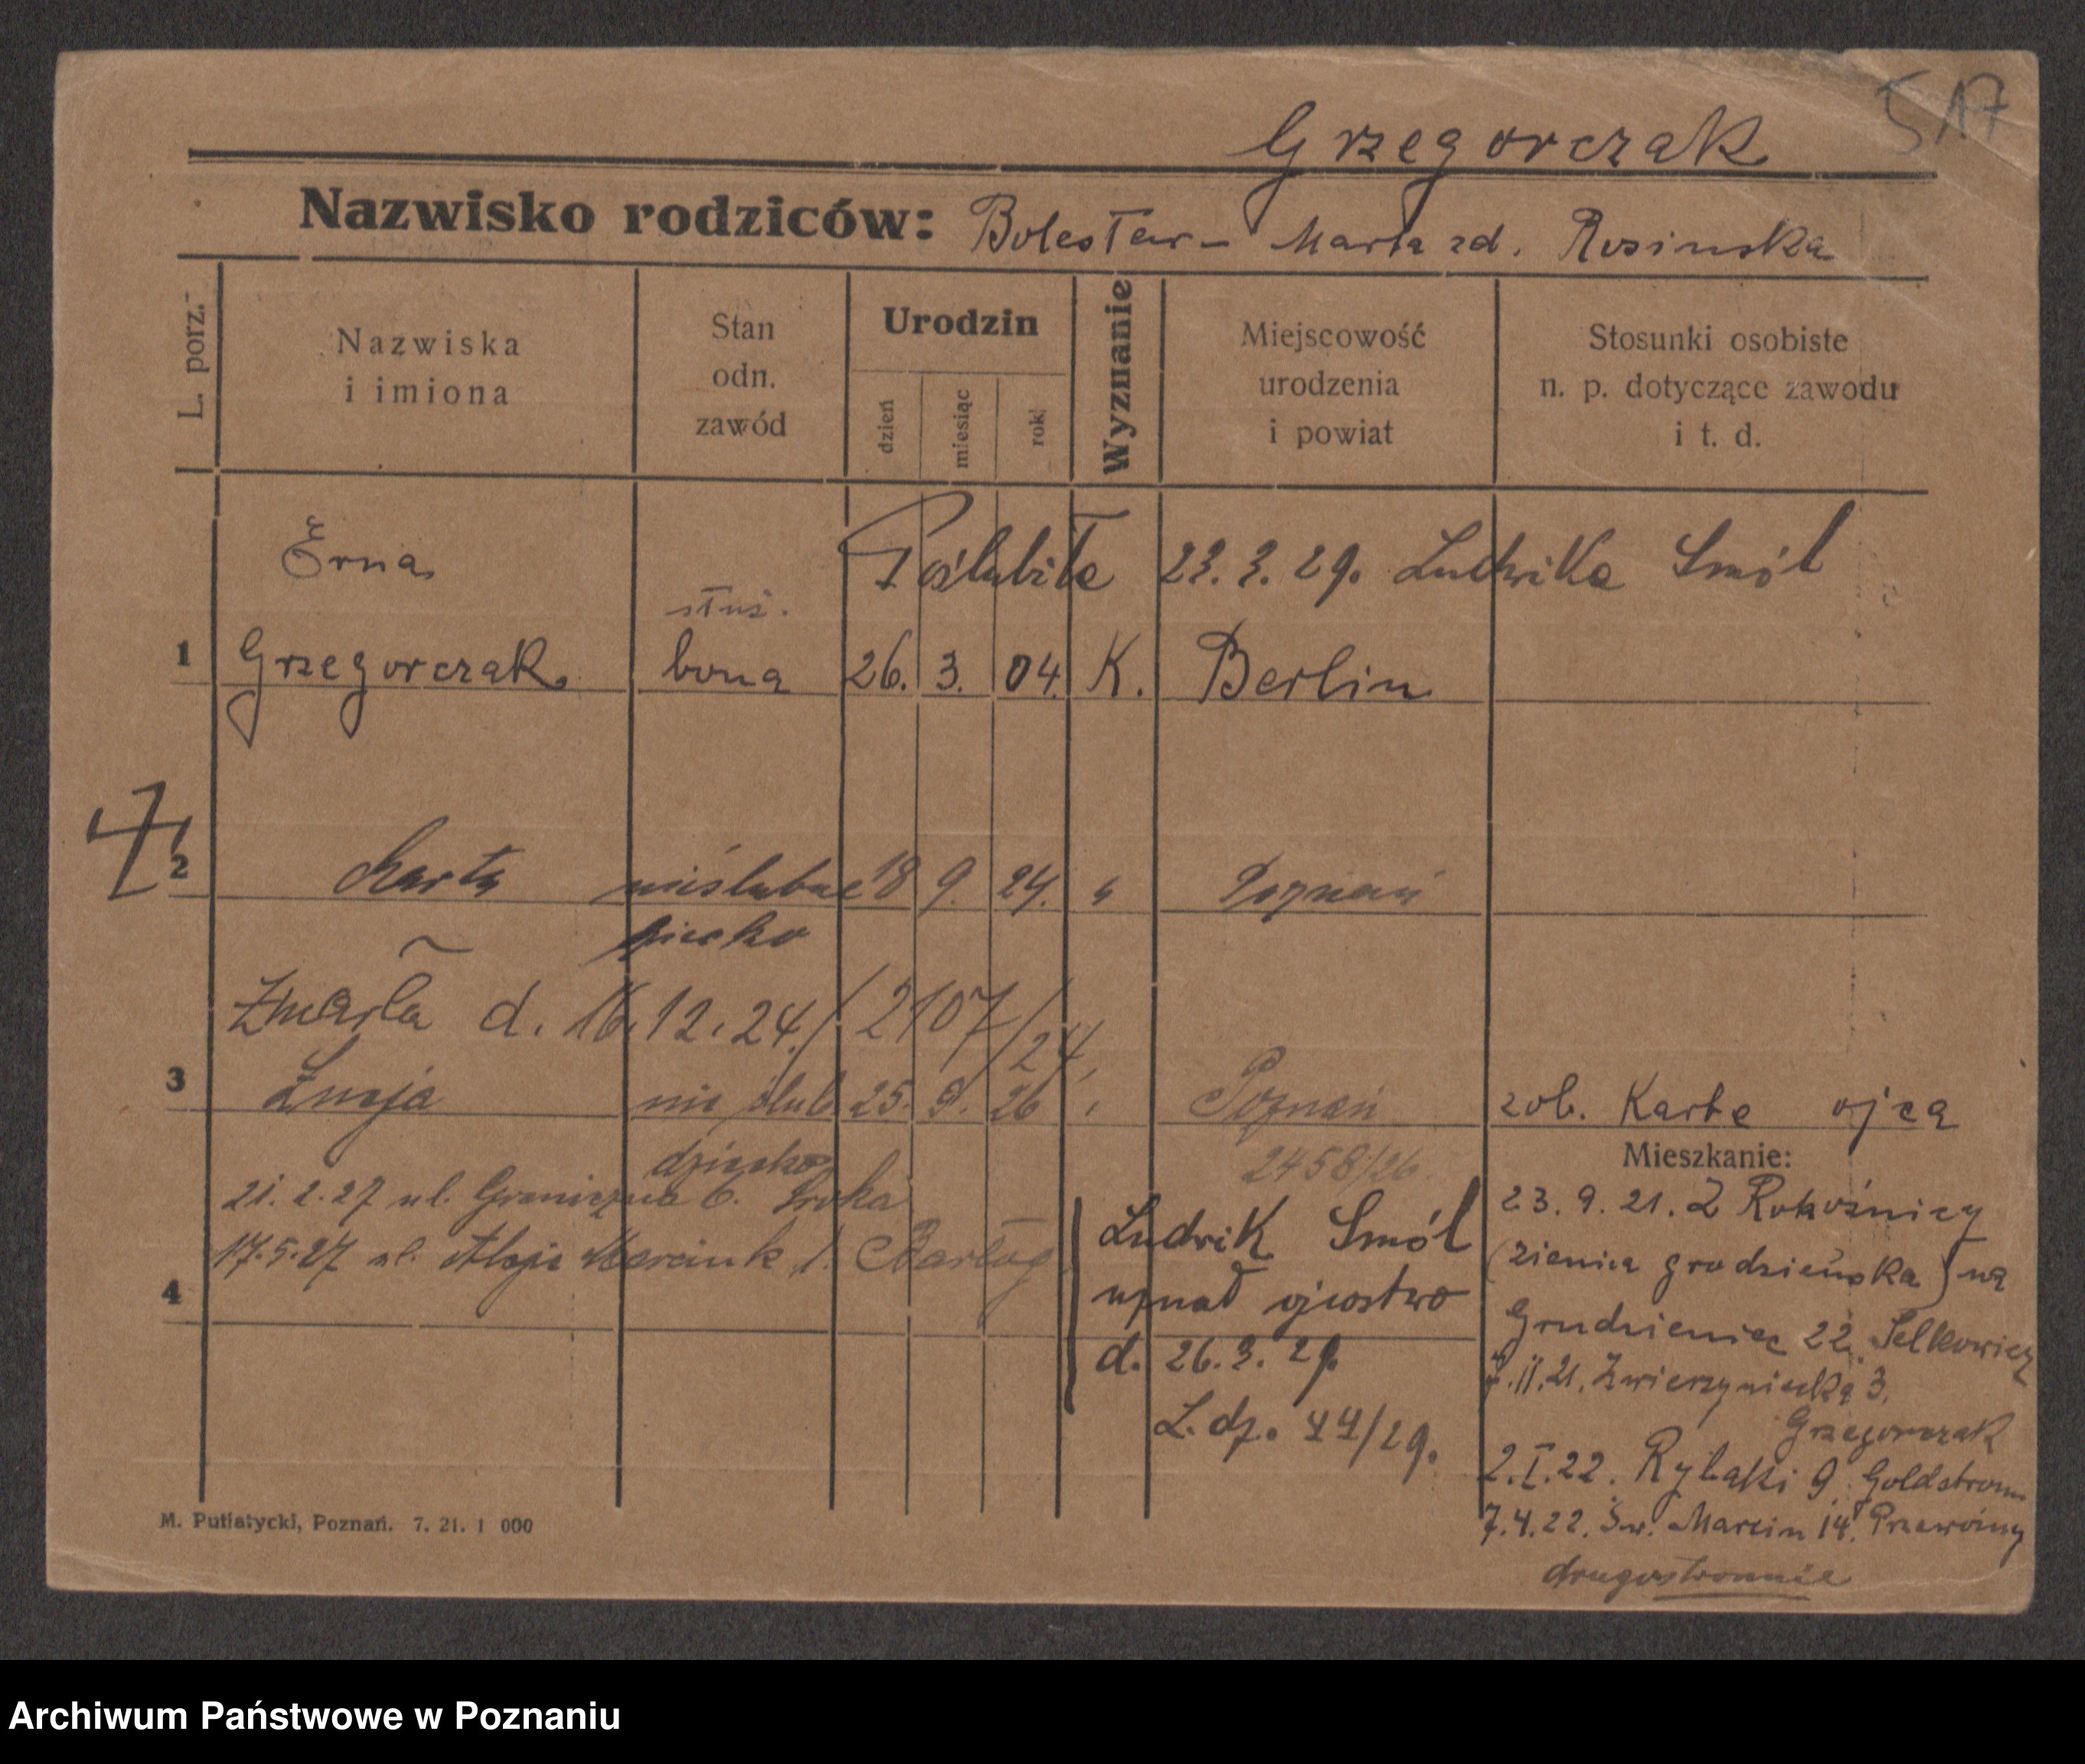 517
Grzegorczak
Nazwisko rodziców: Bolesław - Marta zd. Rosinska
L. porz.
Nazwiska
i imiona
Stan
odn.
zawód
Urodzin
dzień
miesiąc
rok
Wyznanie
Miejscowość
urodzenia
i powiat
Stosunki osobiste
n. p. dotyczące zawodu
i t. d.
Erna
Poślubiła 23.3.29. Ludwika Smół
służ.
1 Grzegorczak bona 26. 3. 04. K. Berlin
2 Marta nieślubne 18 9. 24. " Poznań
dziecko
Zmarła d. 16.12.24. / 2107/24
3 Łucja nie ślub 25. 9. 26 " Poznań zob. Kartę ojca
dziecko 2458/26
Mieszkanie:
21.2.27 ul. Graniczna 6. Sroka
17.5.27 al. Marcink 1. Bartog
4
Ludwik Smół
uznał ojcostwo
d. 26.3.29.
L. dz. 44/29.
23.9.21. Z Rokoźnicy
(ziemia grodzieńska) na
Grudzieniec 22.
7.11.21. Zwierzyniecka 3.
Grzegorczak
2.I.22. Rybaki 9. Goldstrom
7.4.22. Św. Marcin 14. Przewoźny
drugostronnie
M. Putiatycki, Poznań. 7. 21. 1 000
Archiwum Państwowe w Poznaniu